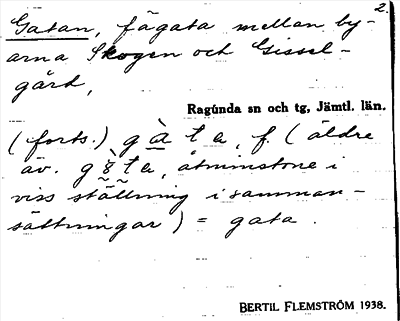 2.
Gatan, fägata mellan by-
arna Skogen och Gissel-
gård,
Ragunda sn och tg, Jämtl. län.
(forts.) g a t a, f. (äldre
äv. g t a, åtminstone i
viss ställning i samman-
sättningar) = gata.
BERTIL FLEMSTRÖM 1938.